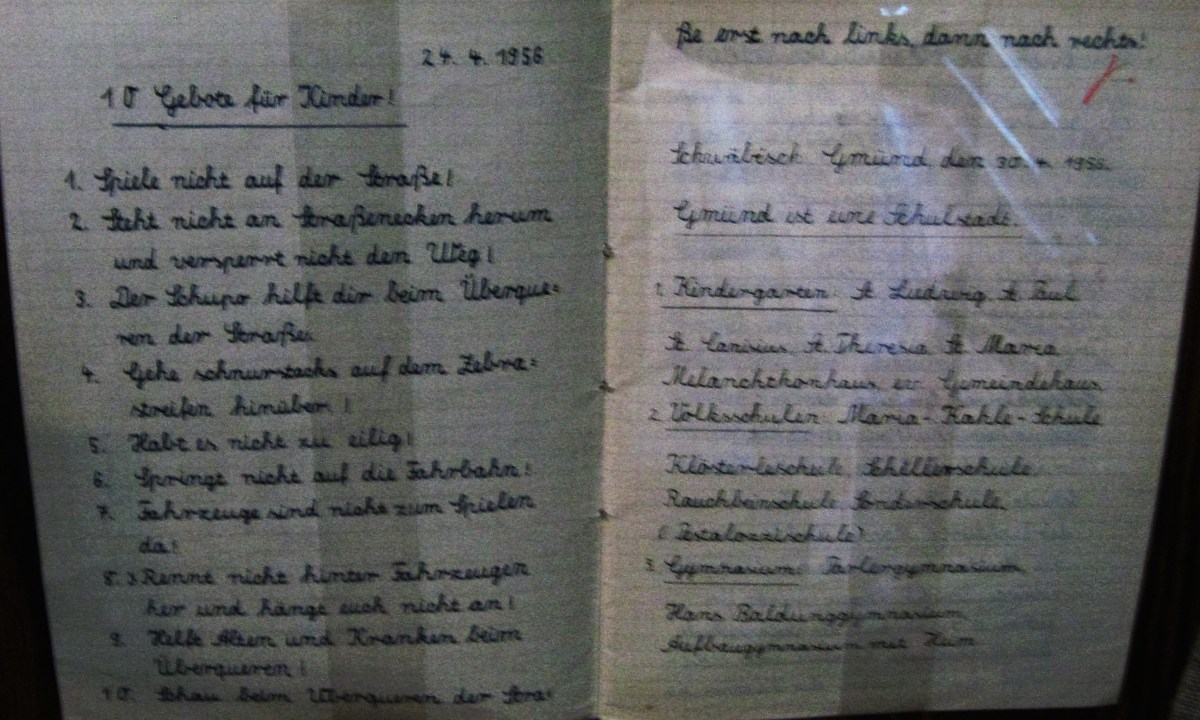 24. 4. 1956
10 Gebote für Kinder!
1. Spiele nicht auf der Straße!
2. Steht nicht an Straßenecken herum
und versperrt nicht den Weg!
3. Der Schupo hilft dir beim Überque=
ren der Straße.
4. Gehe schnurstacks auf dem Zebra=
streifen hinüber!
5. Habt es nicht zu eilig!
6. Springt nicht auf die Fahrbahn!
7. Fahrzeuge sind nicht zum Spielen
da!
8. Rennt nicht hinter Fahrzeugen
her und hängt euch nicht an!
9. Helft Alten und Kranken beim
Überqueren!
10. Schau beim Überqueren der Stra=
ße erst nach links, dann nach rechts!
Schwäbisch Gmünd den 30. 4. 1956.
Gmünd ist eine Schulstadt.
1. Kindergarten: St. Ludwig, St. Paul
St. Canisius, St. Theresia St. Maria
Melanchthonhaus, ev. Gemeindehaus
2. Volksschulen: Maria-Kahle-Schule
Klösterleschule, Schillerschule
Rauchbeinschule, Sonderschule,
(Pestalozzischule)
3. Gymnasium: Parlergymnasium
Hans Baldunggymnasium
Aufbaugymnasium mit Heim